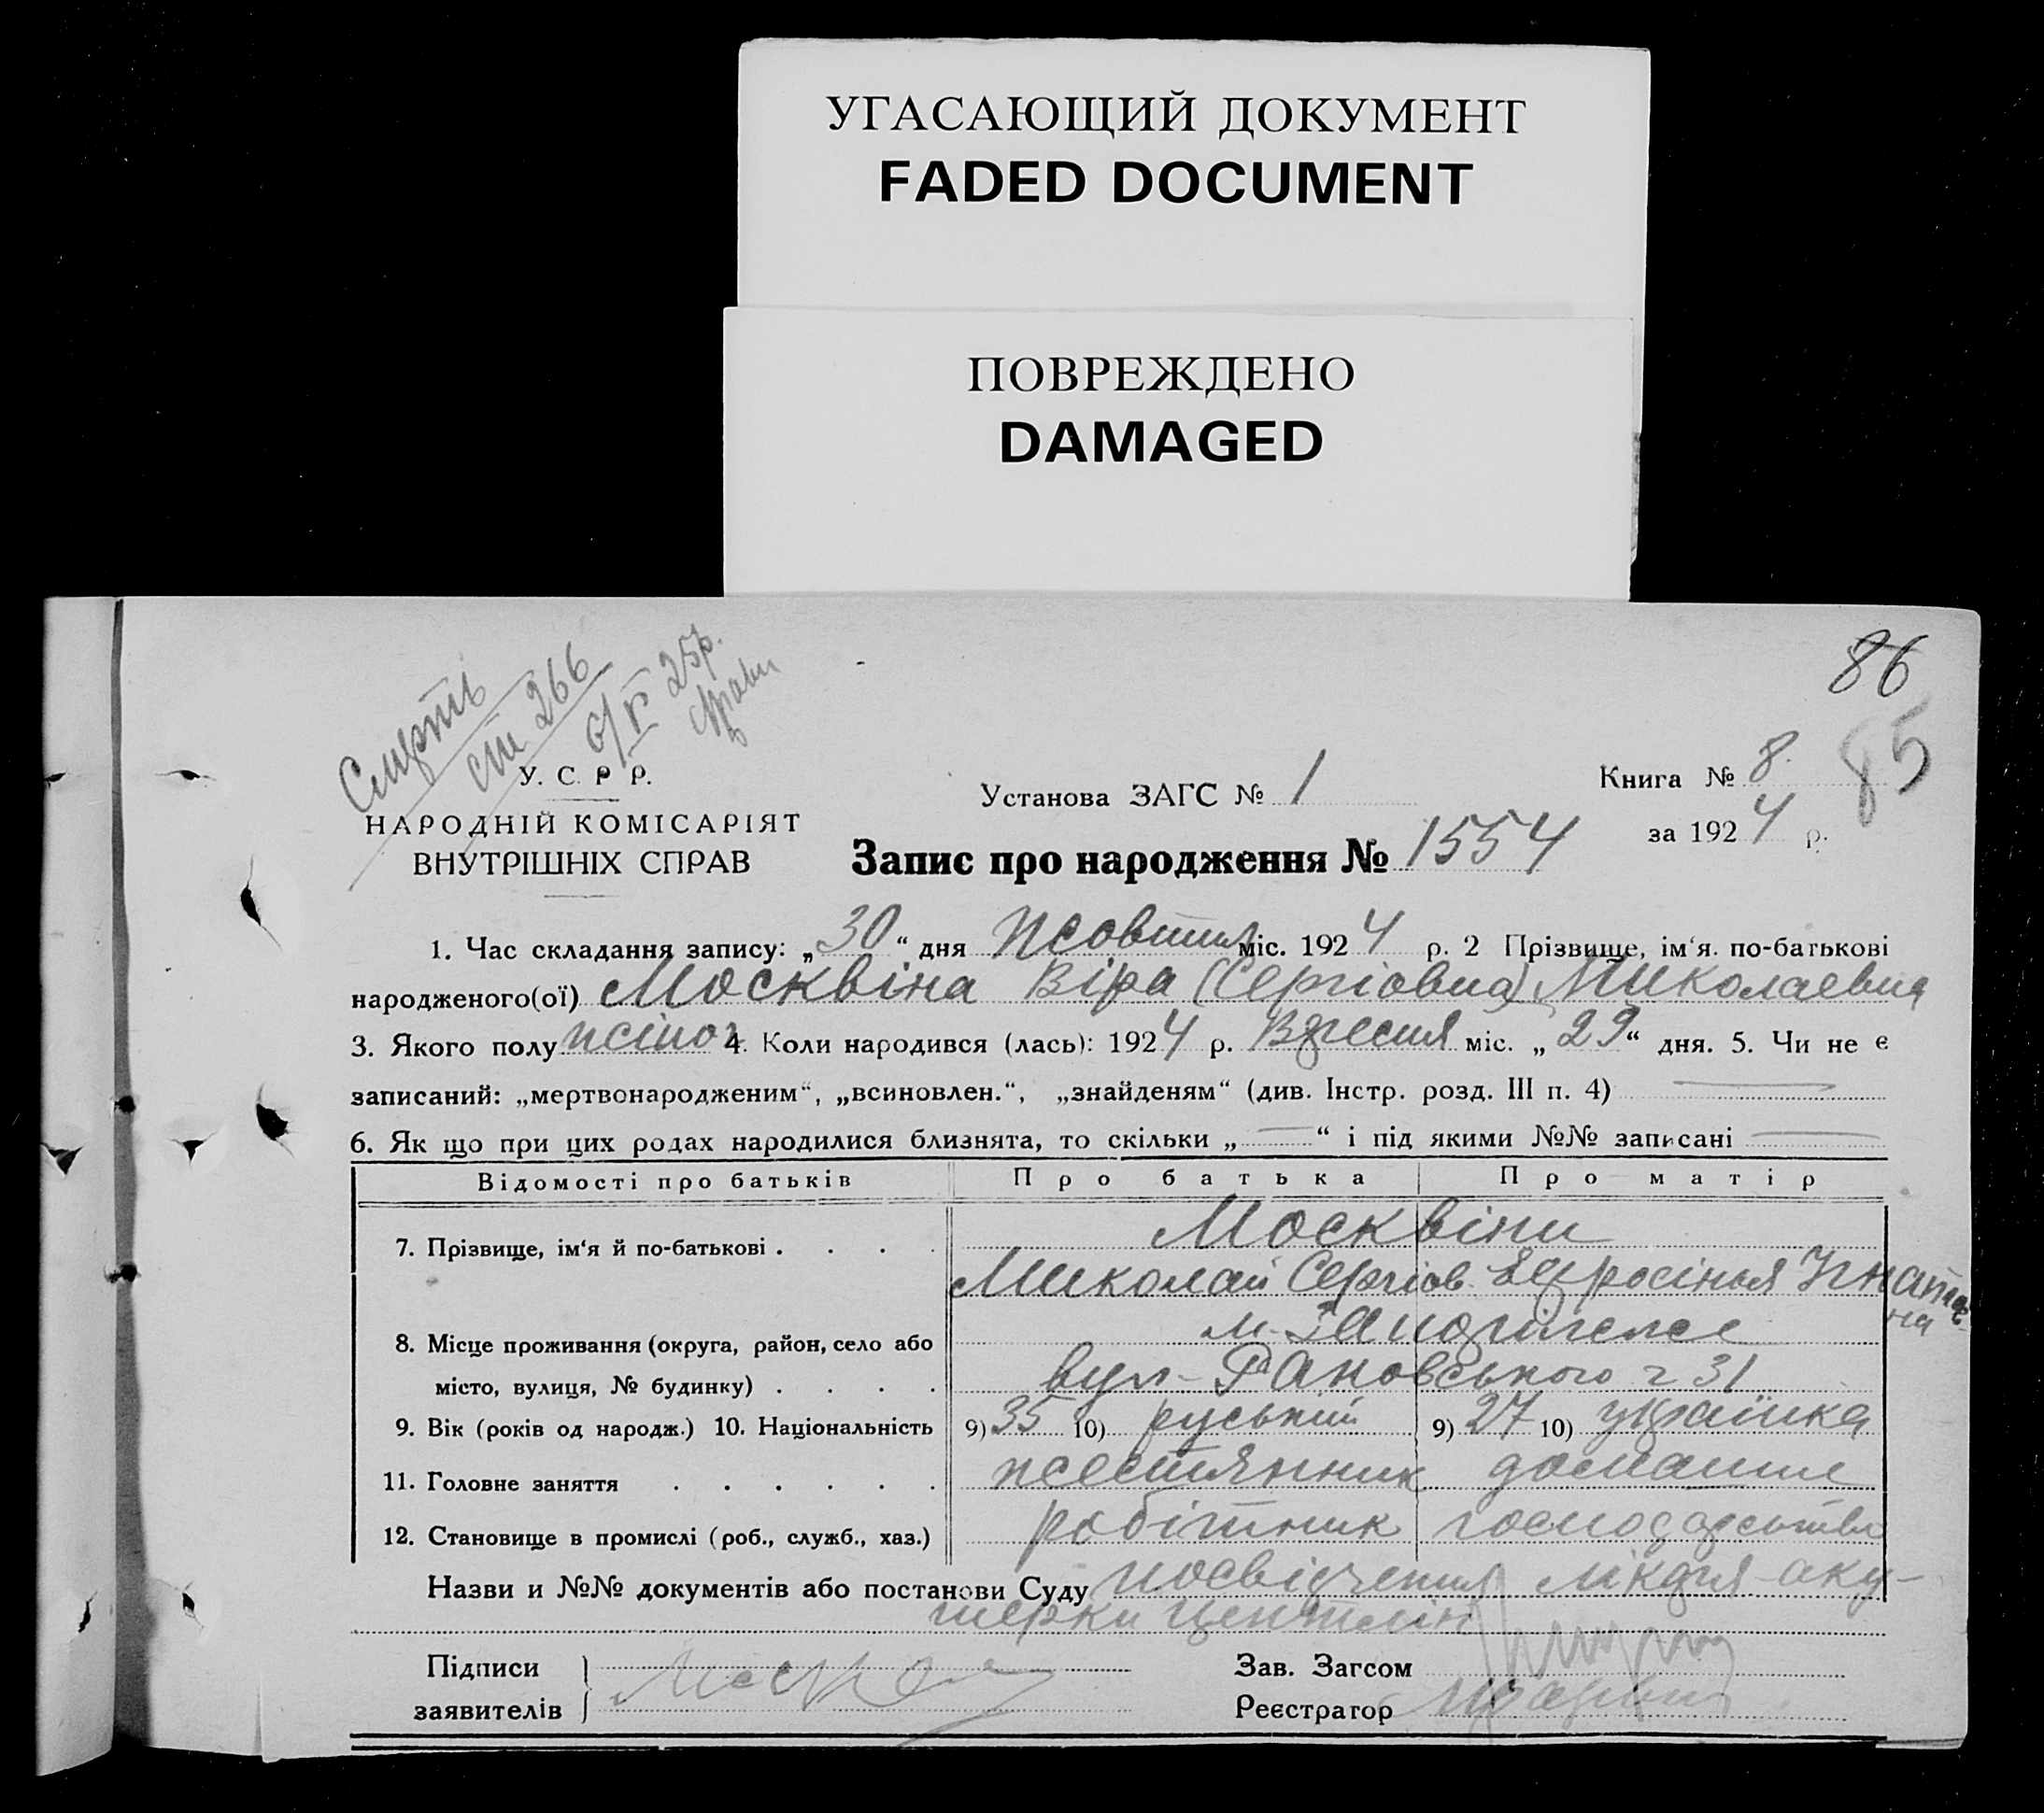 УГАСАЮЩИЙ ДОКУМЕНТ
FADED DOCUMENT
ПОВРЕЖДЕНО
DAMAGED
86
85
Смерть
ст 266
6/V 25р.
У. С. Р Р.
НАРОДНІЙ КОМІСАРІЯТ
ВНУТРІШНІХ СПРАВ
Установа ЗАГС № 1
Книга № 8.
за 1924 р.
Запис про народження № 1554
1. Час складання запису: „30“ дня Жовтня міс. 1924 р. 2 Прізвище, ім‘я. по-батькові
народженого(ої) Москвіна Віра (Сергіовна) Миколаевна
3. Якого полу жіноч 4. Коли народився (лась): 1924 р. Вересня міс. „29“ дня. 5. Чи не є
записаний: „мертвонародженим“, „всиновлен.“, „знайденям“ (див. Інстр. розд. III п. 4)
6. Як що при цих родах народилися близнята, то скільки „—“ і під якими №№ записані —
Відомості про батьків Про батька Про матір
7. Прізвище, ім‘я й по-батькові . . . . Москвіни
Миколай Сергіов. Ефросінья Ігнатов-
на
8. Місце проживання (округа, район, село або
місто, вулиця, № будинку) . . . . вул. Раковського ч 31
9. Вік (років од народж.) 10. Національність 9) 35 10) руський 9) 27 10) українка
11. Головне заняття . . . . . . жестянник домашнє
12. Становище в промислі (роб., служб., хаз.) робітник господарство
Назви и №№ документів або постанови Суду посвідчення аку-
шерки
Підписи
заявителів
Зав. Загсом
Реєстратор